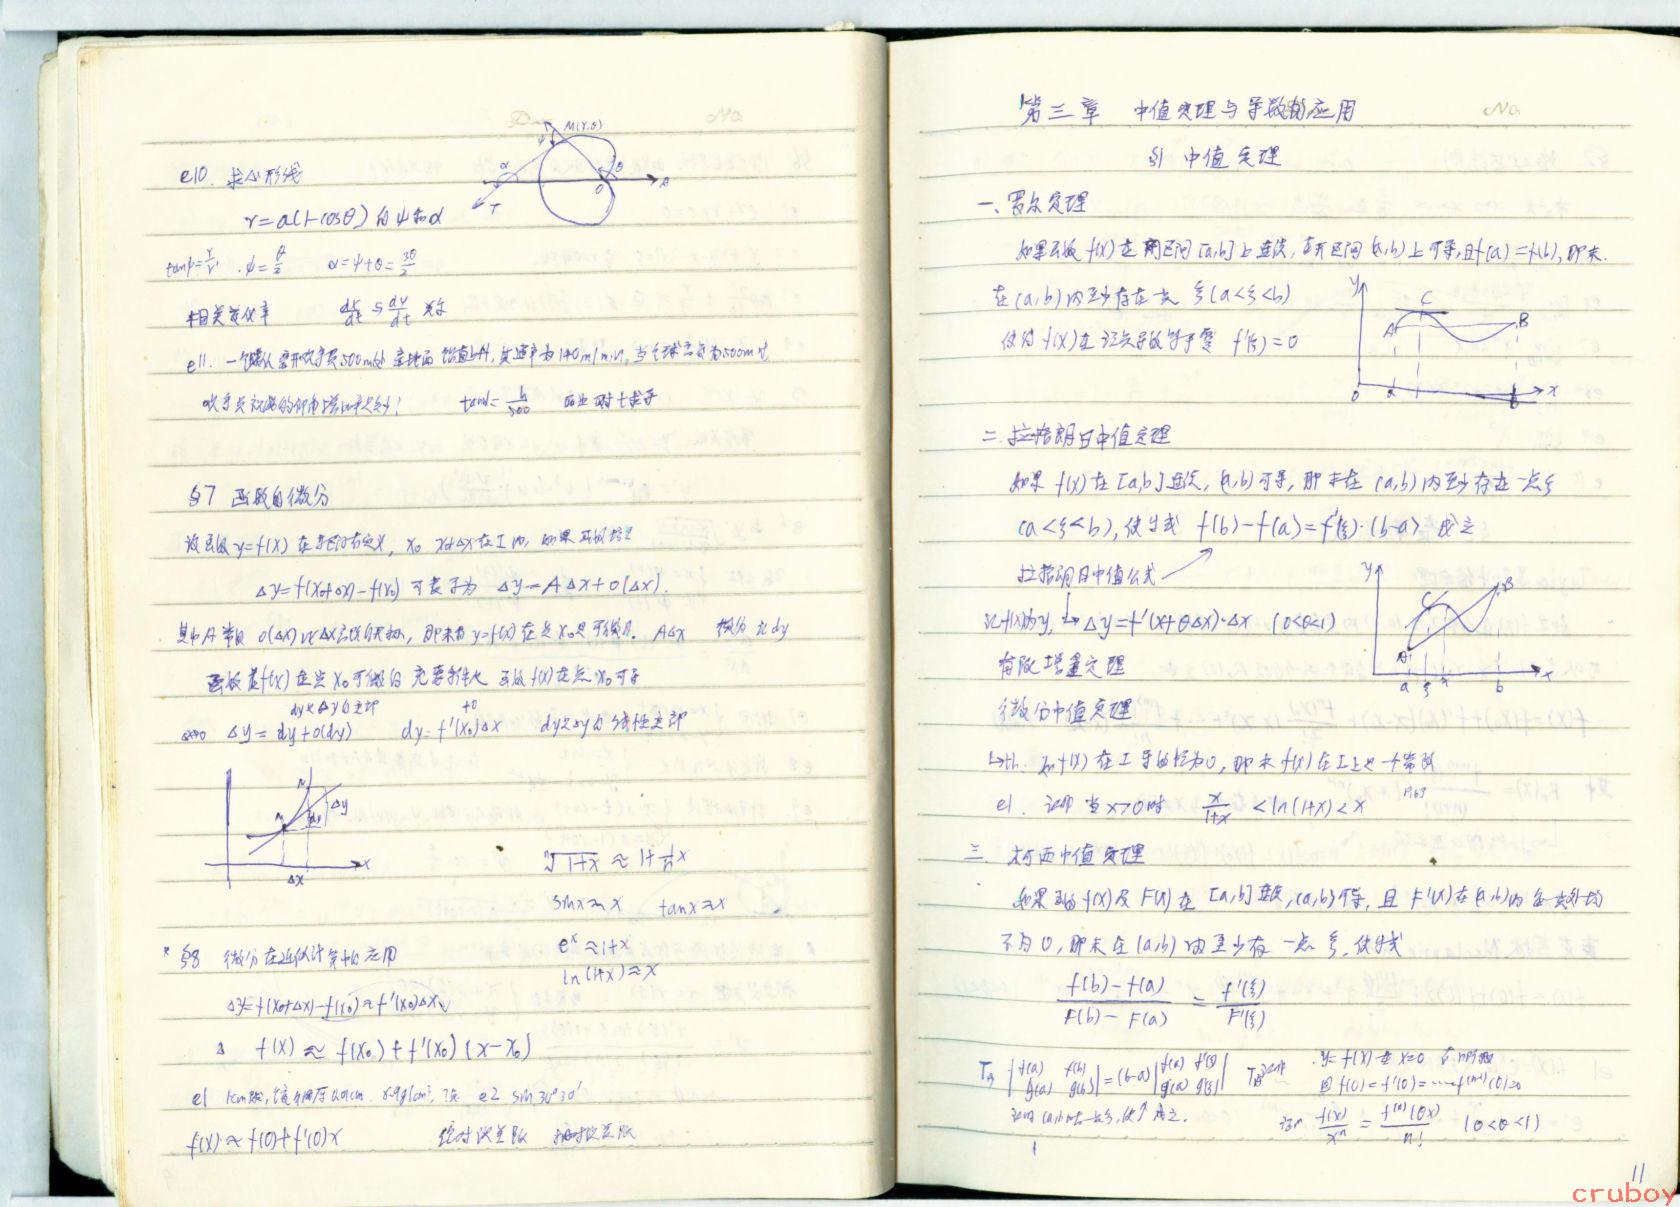 e10. 求心形线
r=a(1-cosθ) 的 ψ和α
M(r,θ)
tanψ=r/r' . ψ=θ/2 α=ψ+θ=3θ/2
相关变化率 dx/dt 与 dy/dt 关系
e11. 一气球从离开观察员500m处离地面铅直上升, 其速率为140m/min, 当气球高度为500m时
观察员视线的仰角增加率是多少? tanα=h/500 两边对t求导
§7 函数的微分
设函数 y=f(x) 在某区间有定义, x₀ x₀+Δx在I内, 如果函数增量
Δy=f(x₀+Δx)-f(x₀) 可表示为 Δy=AΔx+o(Δx).
其中A常数 o(Δx)比Δx高阶无穷小, 那末称 y=f(x)在点x₀是可微的. AΔx 微分 记dy
函数f(x)在点x₀可微的充要条件是函数f(x)在点x₀可导
dy是Δy的主部 ≠0
Δx→0 Δy=dy+o(dy) dy=f'(x₀)Δx dy是Δy的线性主部
N Δy
M dy
x
Δx
ⁿ√1+x ≈ 1+1/n x
sinx≈x tanx≈x
eˣ≈1+x
ln(1+x)≈x
* §8 微分在近似计算中的应用
Δy=f(x₀+Δx)-f(x₀)≈f'(x₀)Δx
f(x)≈f(x₀)+f'(x₀)(x-x₀)
e2 sin30°30'
f(x)≈f(0)+f'(0)x 绝对误差限 相对误差限
第三章 中值定理与导数的应用
§1 中值定理
一、罗尔定理
如果函数f(x)在闭区间[a,b]上连续, 在开区间(a,b)上可导, 且f(a)=f(b), 那末.
在(a,b)内至少存在一点 ξ(a<ξ<b)
使得f(x)在该点导数等于零 f'(ξ)=0
y C A B
0 a b x
二. 拉格朗日中值定理
如果 f(x)在[a,b]连续, (a,b)可导, 那末在(a,b)内至少存在一点ξ
(a<ξ<b), 使等式 f(b)-f(a)=f'(ξ)·(b-a) 成立
拉格朗日中值公式
记f(x)为y, → Δy=f'(x+θΔx)·Δx (0<θ<1)
有限增量定理
微分中值定理
y C B A
a ξ b x
→th. 如f(x)在I导数恒为0, 那末f(x)在I上是一个常数
e1. 证明 当x>0时 x/1+x <ln(1+x)<x
三 柯西中值定理
如果函数f(x)及F(x)在[a,b]连续, (a,b)可导, 且F'(x)在(a,b)内每一点处均
不为0, 那末在(a,b)内至少有一点ξ, 使等式
f(b)-f(a) / F(b)-F(a) = f'(ξ) / F'(ξ)
|f(a) f(b) g(a) g(b)|=(b-a)|f(a) f'(ξ) g(a) g'(ξ)|
y=f(x)在x=0
且f(0)=f'(0)=……f⁽ⁿ⁻¹⁾(0)=0
f(x)/xⁿ = f⁽ⁿ⁾(θx)/n! (0<θ<1)
11
cruboy